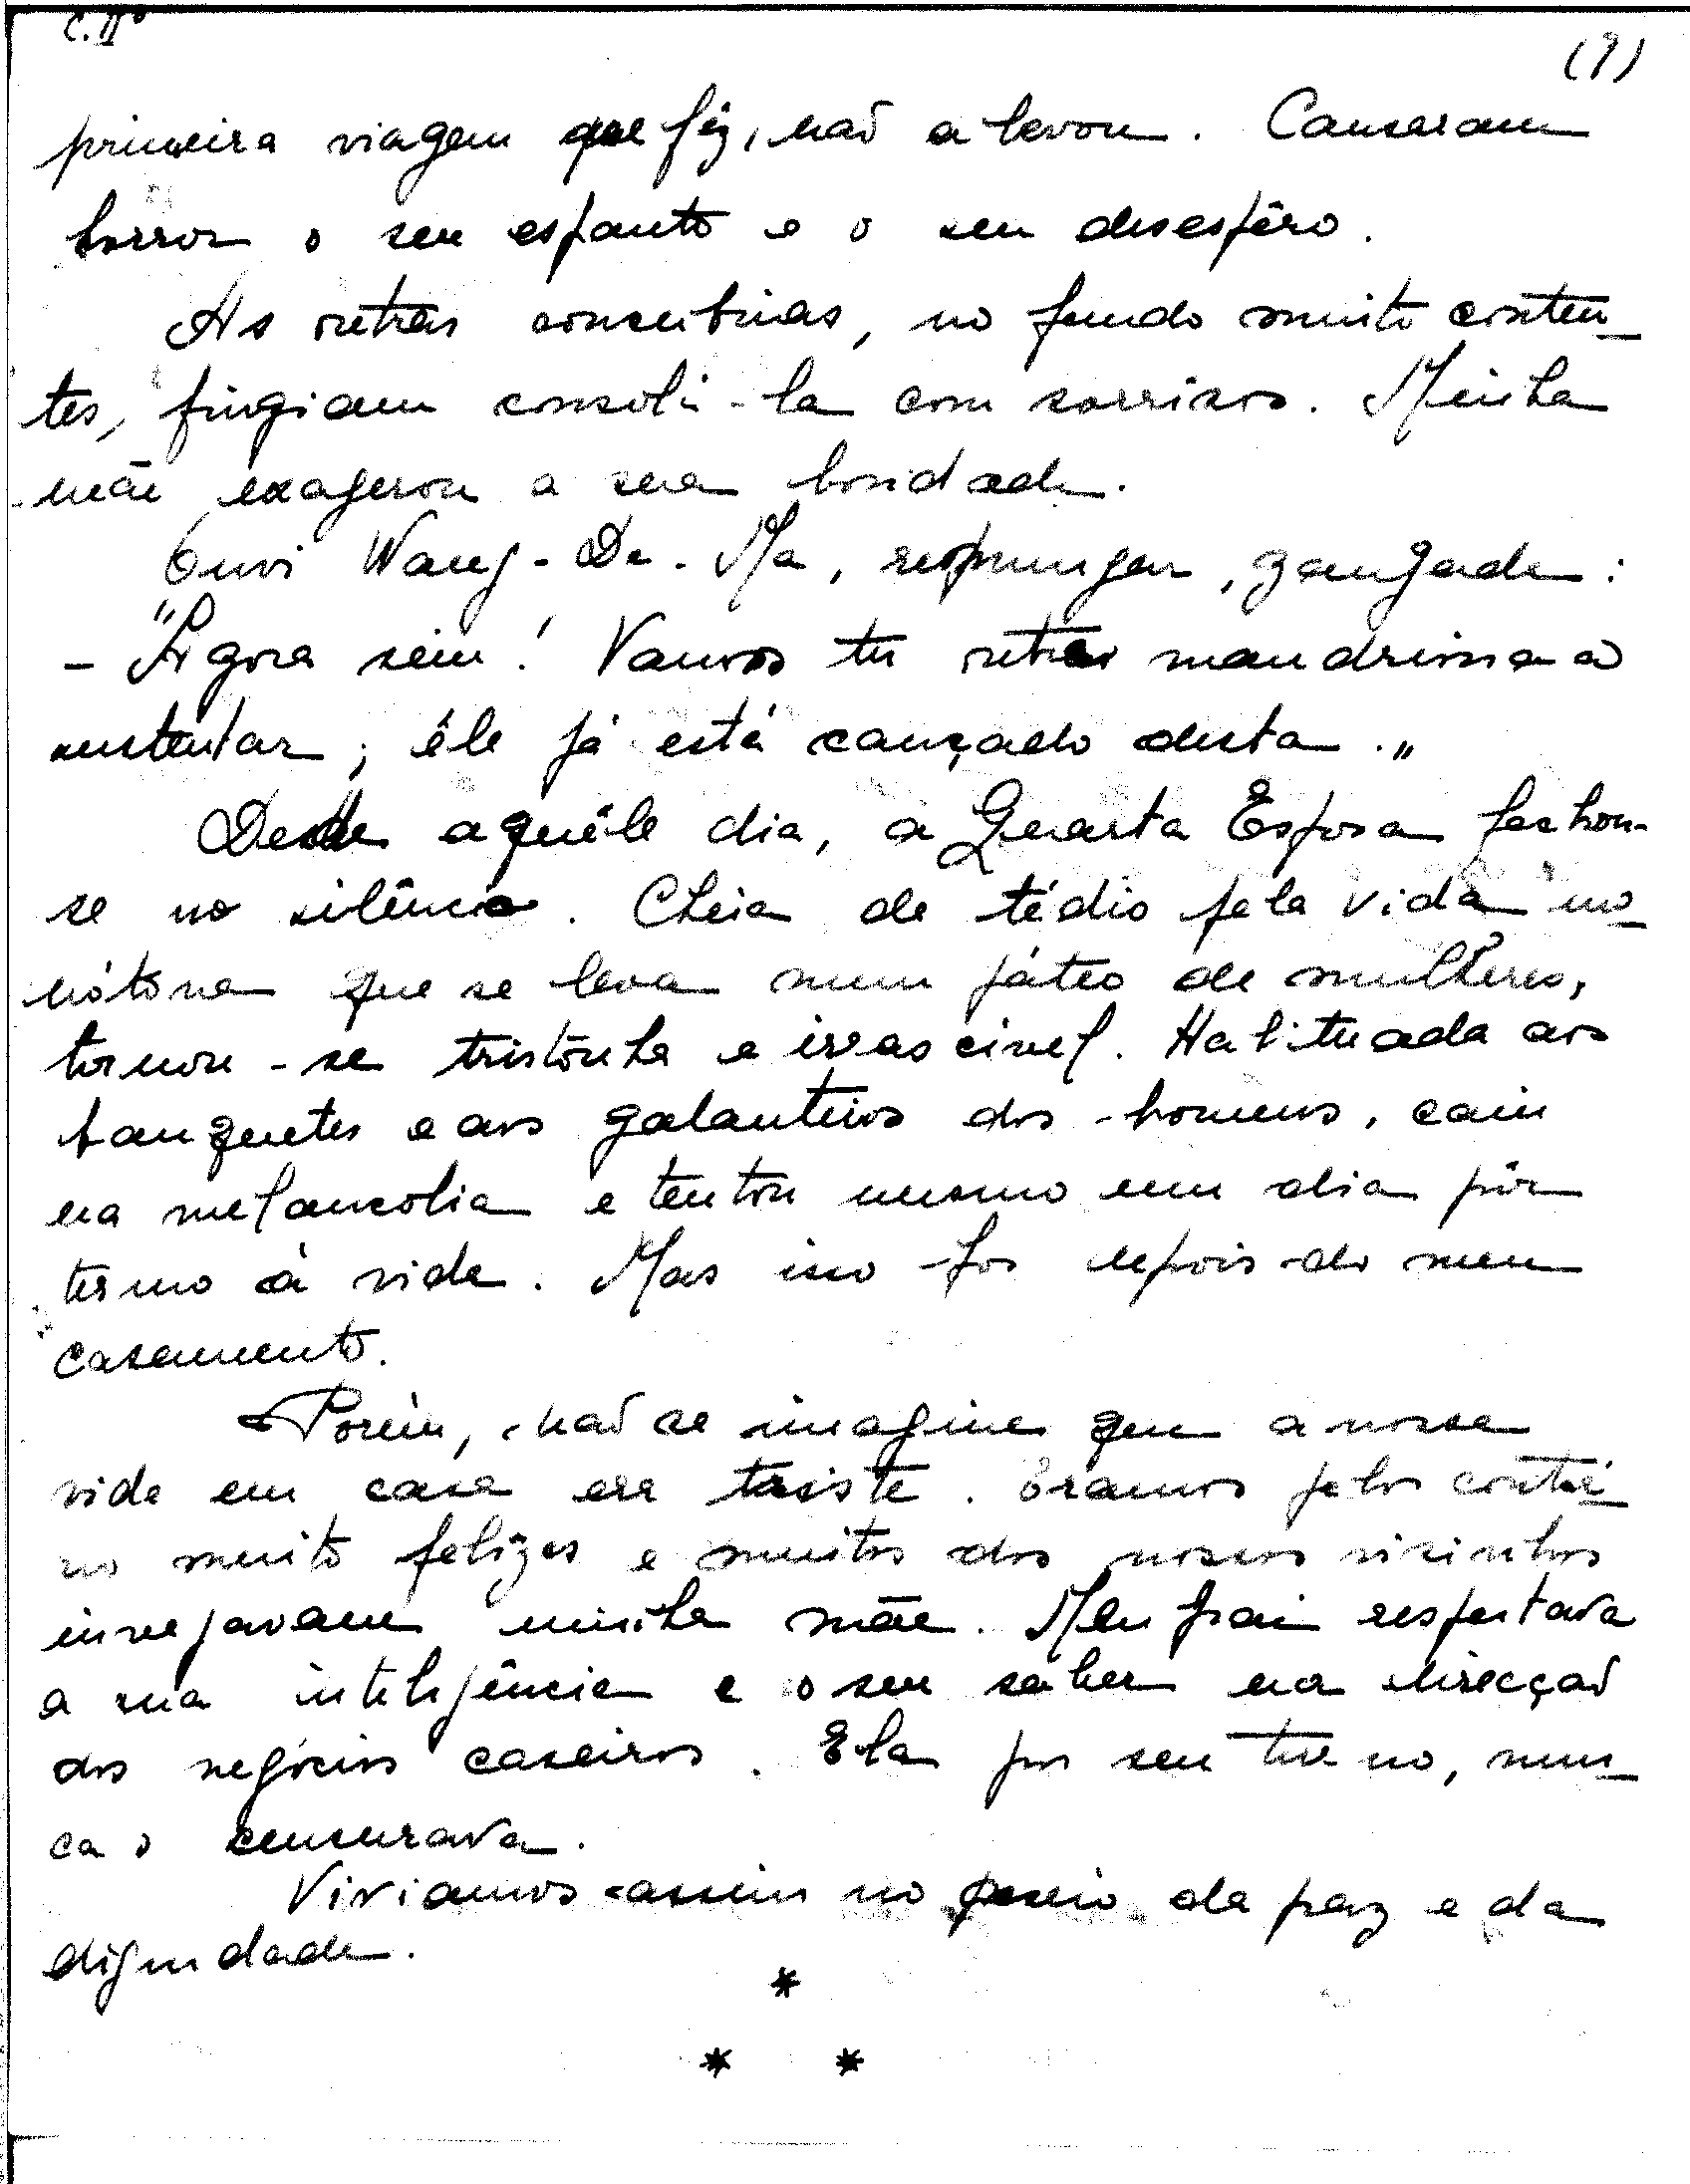 C. IIº
(9)
primeira viagem que fêz, não a levou. Causaram
horror o seu espanto e o seu desespêro.
As outras concubinas, no fundo muito conten-
tes, fingiam consolá-la com sorrisos. Minha
mãe exagerou a sua bondade.
Ouvi Wang-Da-Ma, resmungar, zangada:
- "Agora sim! Vamos ter outra mandriona a
sustentar; êle já está cançado desta."
Desde aquêle dia, a Quarta Esposa fechou-
se no silêncio. Cheia de tédio pela vida mo-
nótona que se leva num páteo de mulheres,
tornou-se tristonha e irrascivel. Habituada aos
banquetes e aos galanteios dos homens, caiu
na melancolia e tentou mesmo um dia pôr
termo à vida. Mas isso foi depois do meu
casamento.
Porém, não se imagine que a nossa
vida em casa era triste. Eramos pelo contrá-
rio muito felizes e muitos dos nossos visinhos
invejavam minha mãe. Meu pai respeitava
a sua inteligência e o seu saber na direcção
dos negócios caseiros. Ela por seu turno, nun-
ca o censurava.
Viviamos assim no seio da paz e da
dignidade.
*
* *